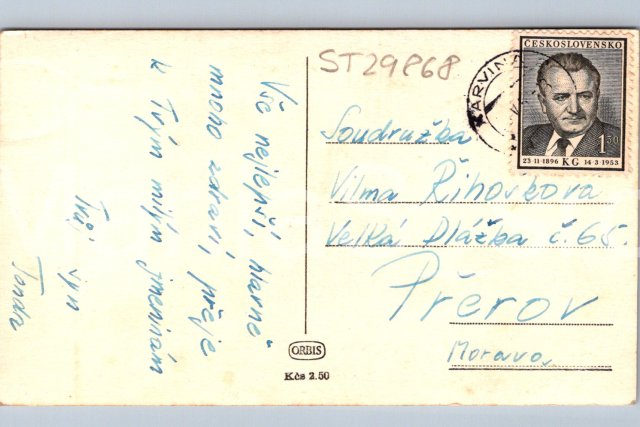 Vše nejlepší, hlavně
mnoho zdraví, přeje
k Tvým milým jmeninám
Tvůj syn
Tonda
ST29868
KARVINÁ
ČESKOSLOVENSKO
1.50
23·11·1896 KG 14·3·1953
Soudružka
Vilma Řihovkova
Velká Dlážka č. 65.
Přerov
Morava
ORBIS
Kčs 2.50